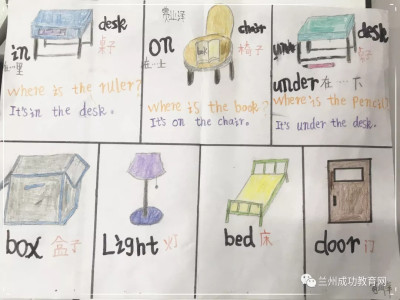 desk
桌子
in
在…里
where is the ruler?
It's in the desk.
chair
椅子
on
在…上
where is the book?
It's on the chair.
desk
桌子
under
under 在…下
where is the pencil?
It's under the desk.
box 盒子
Light 灯
bed 床
door 门
兰州成功教育网